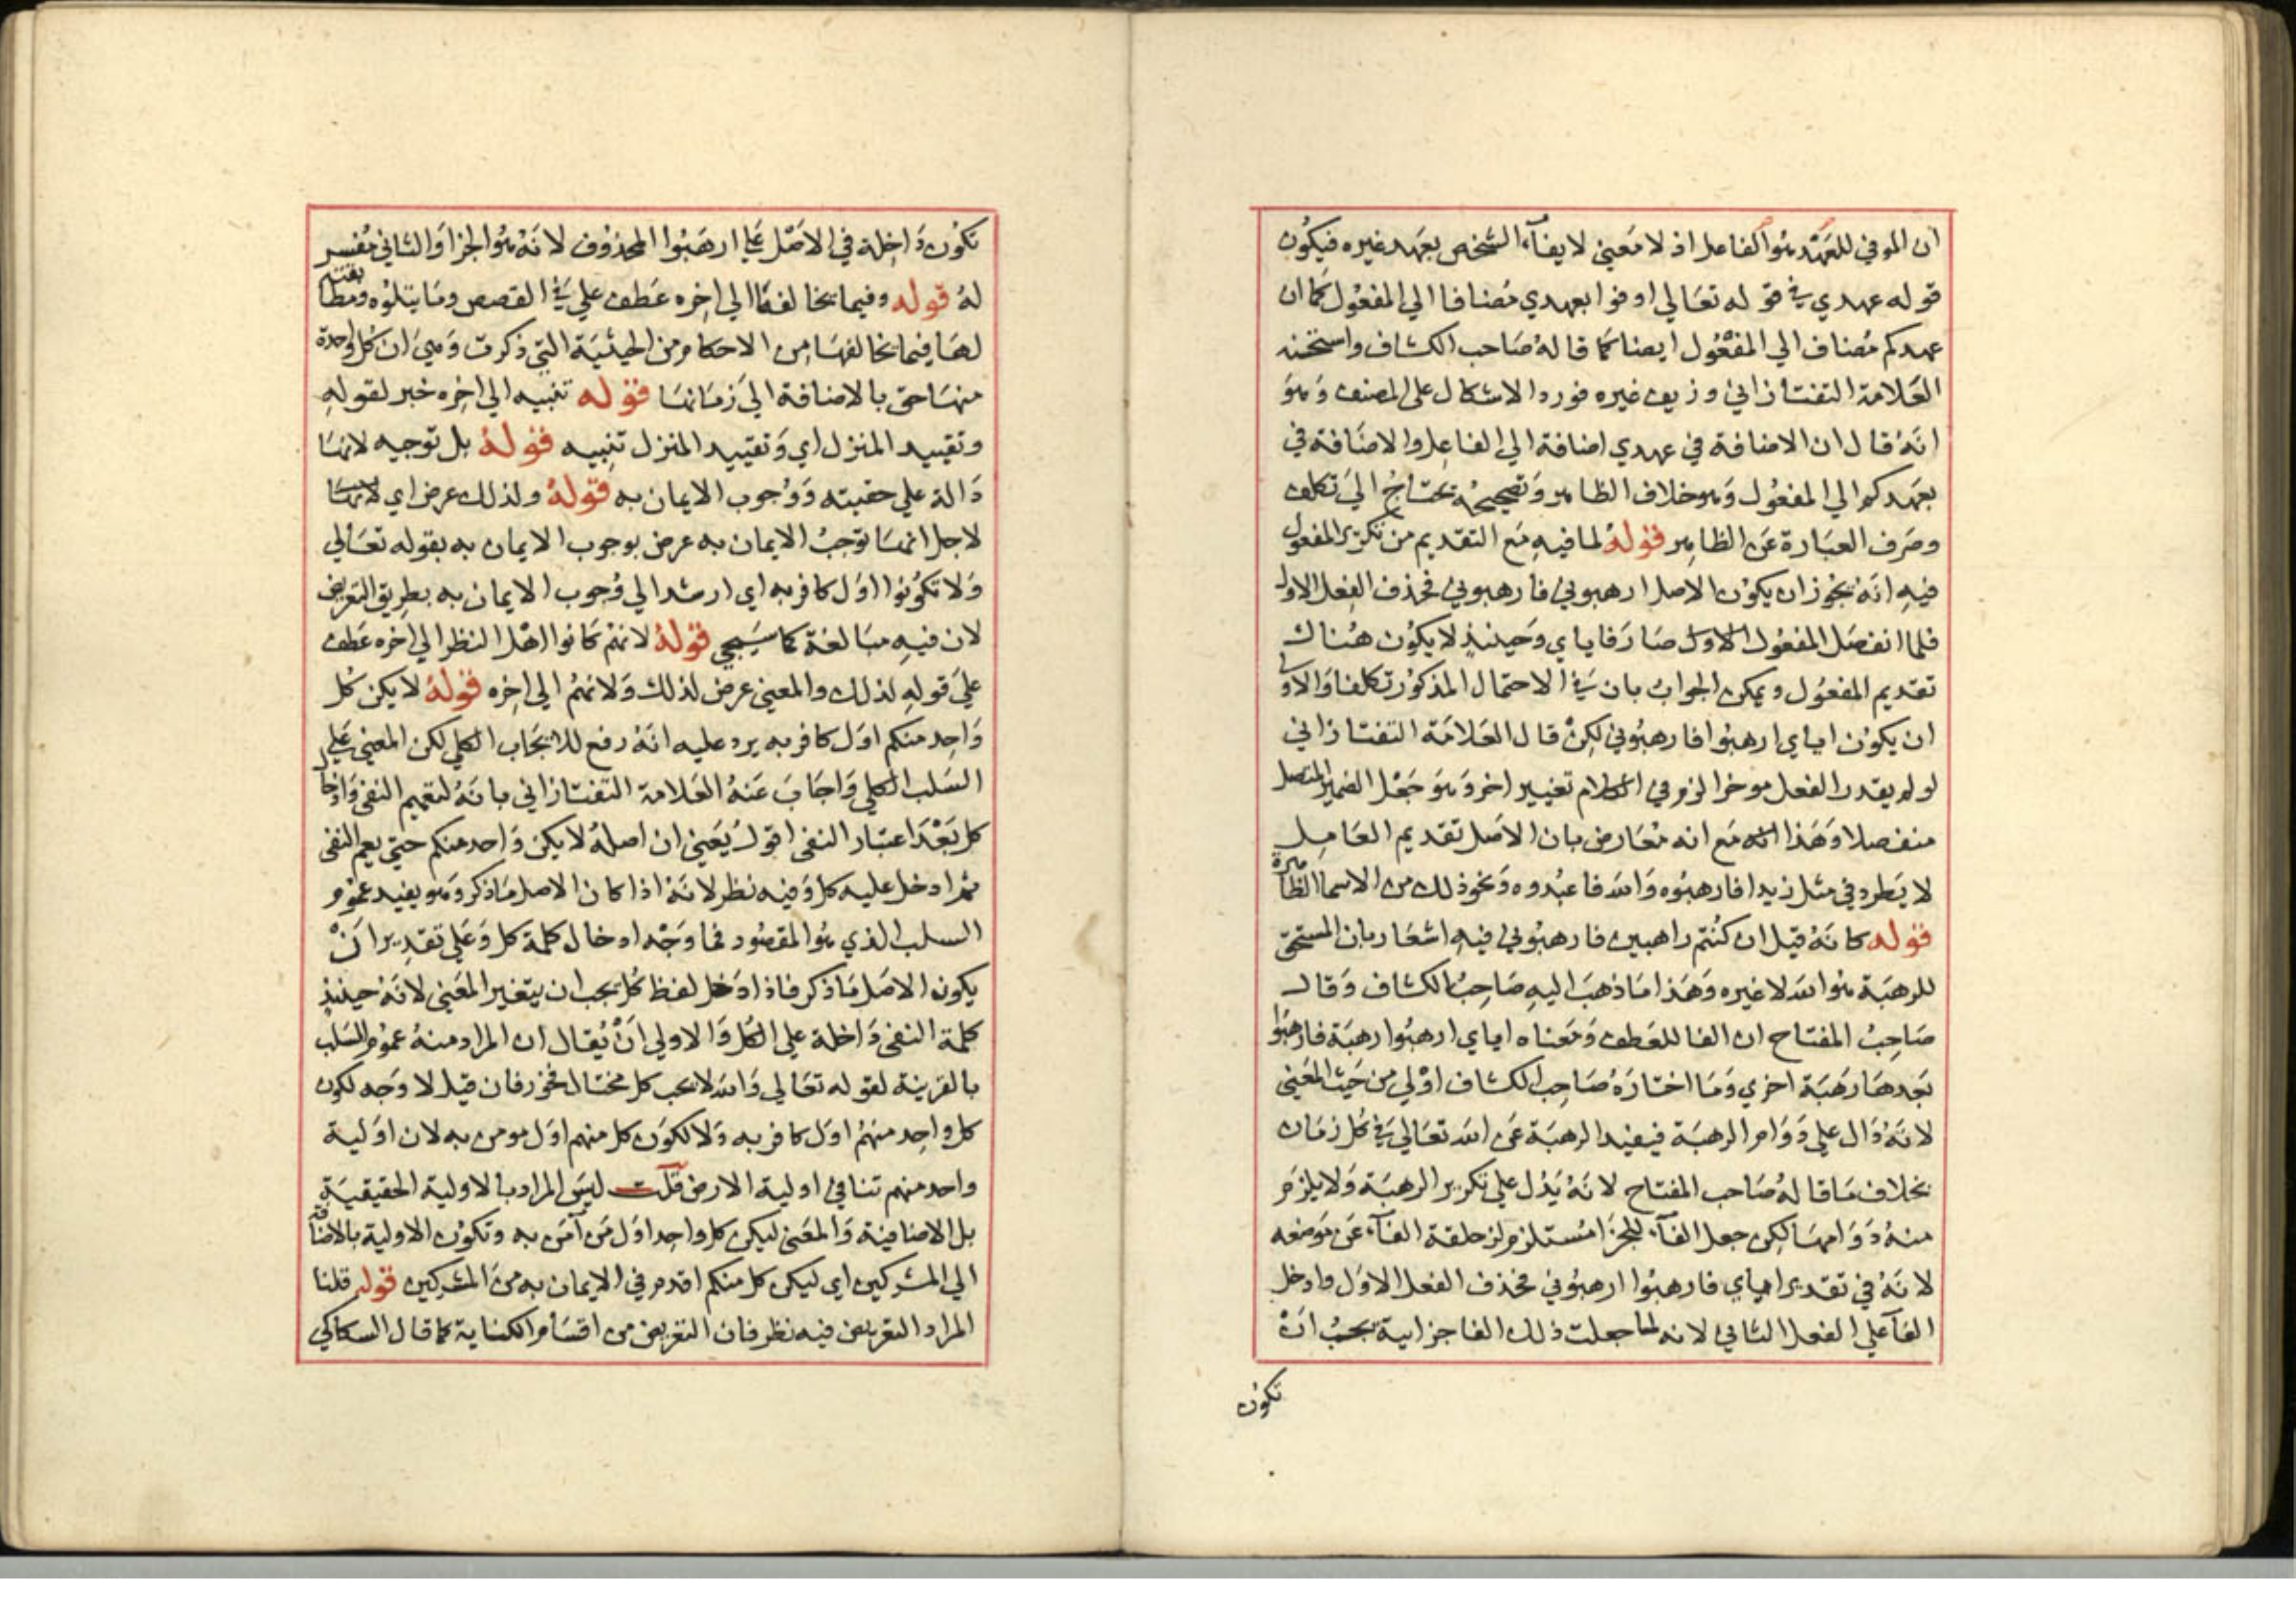 ان الموفي للعهد هو الفاعل اذ لا معني لايفآء الشخص بعهد غيره فيكون
قوله عهدي في قوله تعالي اوفوا بعهدي مضافا الي المفعول كما ان
عهدكم مضاف الي المفعول ايضا كما قاله صاحب الكشاف واستحسنه
العلامة التفتازاني وزيف غيره فورد الاشكال علي المصنف وهو
انه قال ان الاضافة في عهدي اضافة الي الفاعل والاضافة في
بعهدكم الي المفعول وهو خلاف الظاهر وتصحيحه يحتاج الي تكلف
وصرف العبارة عن الظاهر قوله لما فيه مع التقديم من تكرير المفعول
فيه انه يجوز ان يكون الاصل ارهبوني فارهبوني فحذف الفعل الاول
فلما انفصل المفعول الاول صار فاياي وحينئذ لا يكون هناك
تقديم المفعول ويمكن الجواب بان في الاحتمال المذكور تكلفا والاولي
ان يكون اياي ارهبوا فارهبوني لكن قال العلامة التفتازاني
لو لم يقدر الفعل موخرا لزم في الكلام تغيير اخر وهو جعل الضمير المتصل
منفصلا وهذا انه مع انه معارض بان الاصل تقديم العامل
لا يطرد في مثل زيدا فارهبوه والله فاعبدوه ونحو ذلك من الاسما الظاهرة
قوله كانه قيل ان كنتم راهبين فارهبوني فيه اشعار بان المستحق
للرهبة هو الله لا غيره وهذا ما ذهب اليه صاحب الكشاف وقال
صاحب المفتاح ان الفا للعطف ومعناه اياي ارهبوا رهبة فارهبوا
بعدها رهبة اخري وما اختاره صاحب الكشاف اولي من حيث المعني
لانه دال علي دوام الرهبة فيفيد الرهبة عن الله تعالي في كل زمان
بخلاف ما قاله صاحب المفتاح لانه يدل علي تكرير الرهبة ولا يلزم
منه دوامها لكن جعل الفآء للجزا مستلزم لزحلقة الفآء عن موضعه
لانه في تقدير اياي فارهبوا ارهبوني فحذف الفعل الاول وادخل
الفآ علي الفعل الثاني لانه لما جعلت ذلك الفا جزاية يجب ان
تكون
تكون داخلة في الاصل علي ارهبوا المحذوف لانه هو الجزا والثاني مفسر
له قوله وفيما يخالفها الي اخره عطف علي في القصص وما يتلوه ومطابقته
لها فيما يخالفها من الاحكام من الحيثية التي ذكرت وهي ان كل واحدة
منها حق بالاضافة الي زمانها قوله تنبيه الي اخره خبر لقوله
وتقييد المنزل اي وتقييد المنزل تنبيه قوله بل توجيه لانها
دالة علي حقيته ووجوب الايمان به قوله ولذلك عرض اي لانها
لاجل انها توجب الايمان به عرض بوجوب الايمان به بقوله تعالي
ولا تكونوا اول كافر به اي ارشد الي وجوب الايمان به بطريق التعريض
لان فيه مبالغة كما سيجي قوله لانهم كانوا اهل النظر الي اخره عطف
علي قوله لذلك والمعني عرض لذلك ولانهم الي اخره قوله لا يكن كل
واحد منكم اول كافر به يرد عليه انه رفع للايجاب الكلي لكن المعني علي
السلب الكلي واجاب عنه العلامة التفتازاني بانه لتعميم النفي وادخال
كل بعد اعتبار النفي اقول يعني ان اصله لا يكن واحد منكم حتي يعم النفي
ثم ادخل عليه كل وفيه نظر لانه اذا كان الاصل ما ذكر وهو يفيد عموم
السلب الذي هو المقصود فما وجه ادخال كلمة كل وعلي تقدير ان
يكون الاصل ما ذكر فاذا ادخل لفظ كل يجب ان يتغير المعني لانه حينئذ
كلمة النفي داخلة علي الكل والاولي ان يقال ان المراد منه عموم السلب
بالقرينة لقوله تعالي والله لا يحب كل مختال فخور فان قيل لا وجه لكون
كل واحد منهم اول كافر به ولا لكون كل منهم اول مومن به لان اولية
واحد منهم تنافي اولية الارض قلت ليس المراد بالاولية الحقيقية
بل الاضافية والمعني ليكن كل واحد اول من آمن به وتكون الاولية بالاضافة
الي المشركين اي ليكن كل منكم اقدم في الايمان به من المشركين قوله قلنا
المراد التعريض فيه نظر فان التعريض من اقسام الكناية كما قال السكاكي